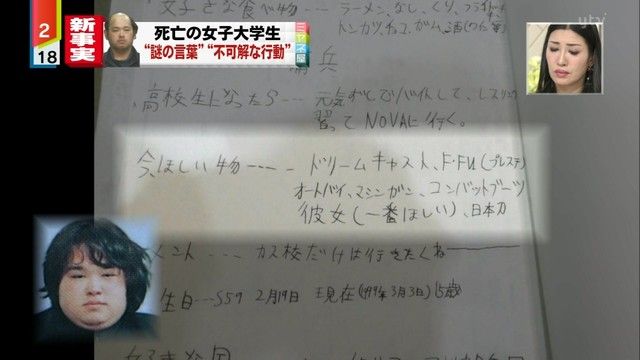 utv
2
18
新事実
ミヤネ屋
死亡の女子大学生
“謎の言葉”“不可解な行動”
好きな食べ物
ラーメン、なし、くり、フライド
トンカツ、チョコ、ガム
兵
高校生になったら
習ってNOVAに行く。
今、ほしい物----ドリームキャスト、F・FⅧ(プレステ)
オートバイ、マシンガン、コンバットブーツ
彼女(一番ほしい)、日本刀
メント....カス校だけは行きたくねー
生日...S59 2月19日 現在(1999年3月3日)15歳